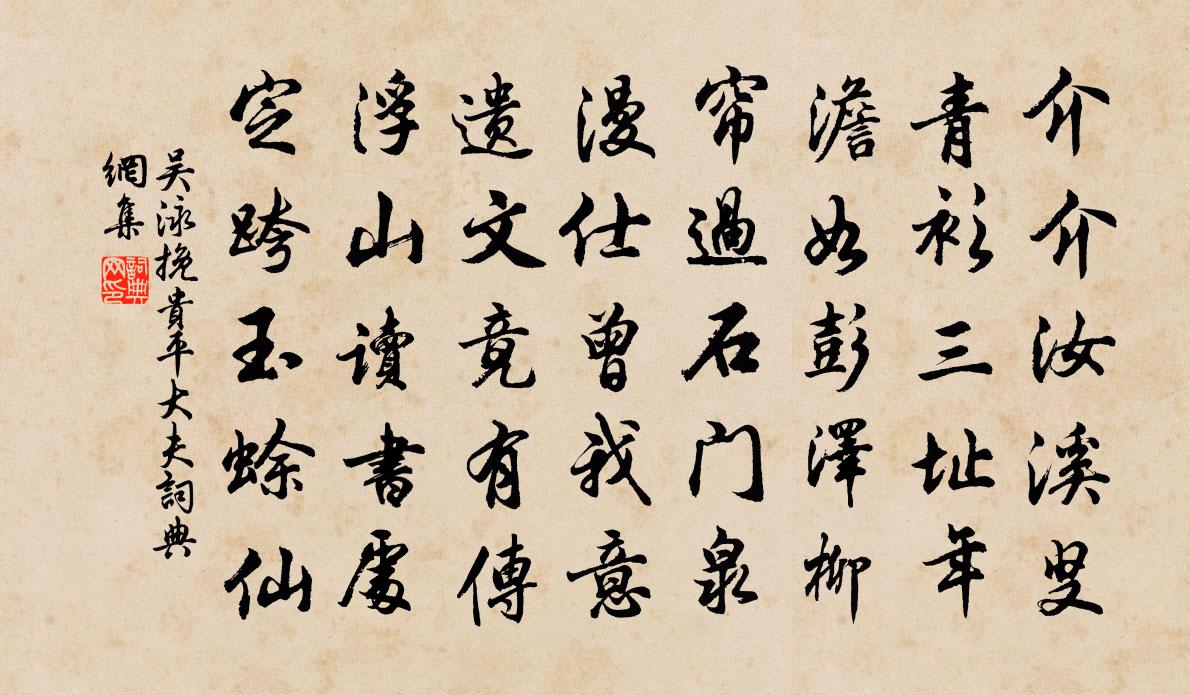 介介汝溪叟
青衫三址年
澹如彭澤柳
帘過石门泉
漫仕曾我意
遗文竟有傳
浮山讀書處
定跨玉蜍仙
吴泳挽貴平大夫詞典
網集
詞典
网印